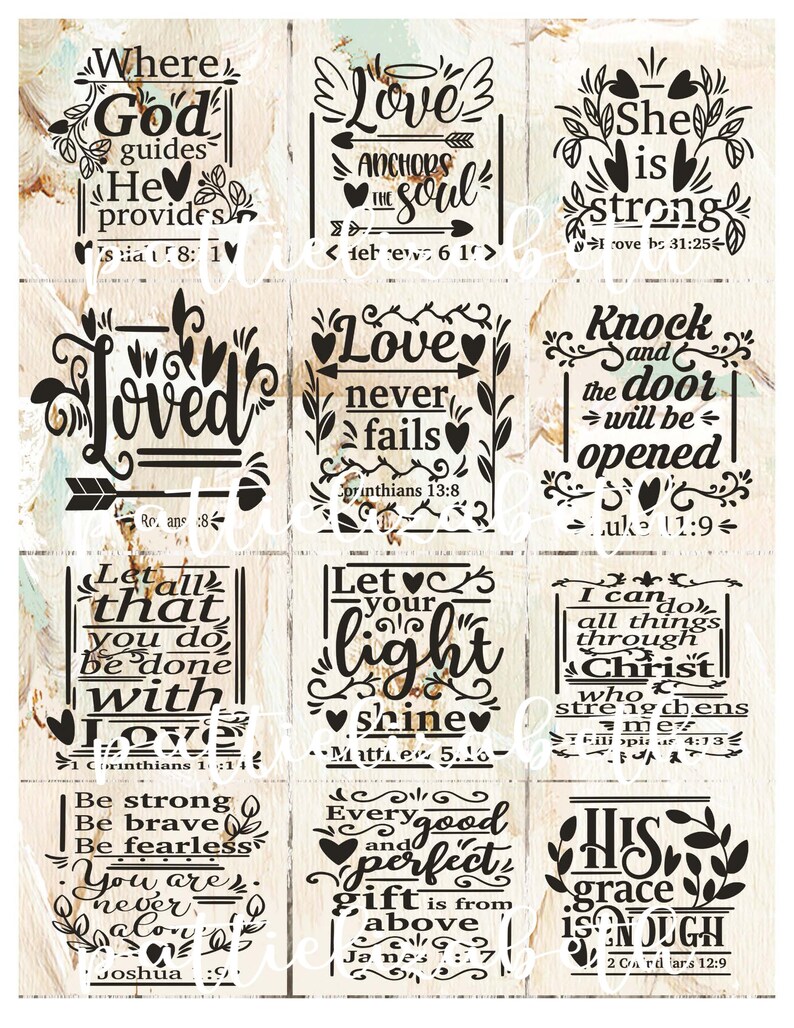 Where
God
guides
He
provides
Isaiah 58:11
Love
ANCHORS
THE soul
Hebrews 6:19
She
is
strong
Proverbs 31:25
Loved
Romans :8
Love
never
fails
Corinthians 13:8
Knock
and
the door
will be
opened
Luke 11:9
Let all
that
you do
be done
with
Love
1 Corinthians 16:14
Let
your
light
shine
Matthew 5:16
I can
do
all things
through
Christ
who
strengthens
me
Philippians 4:13
Be strong
Be brave
Be fearless
You are
never
alone
Joshua 1:9
Every good
and
perfect
gift is from
above
James 1:17
HIS
grace
is ENOUGH
2 Corinthians 12:9
pattielizabeth
pattielizabeth
pattielizabeth
pattielizabeth